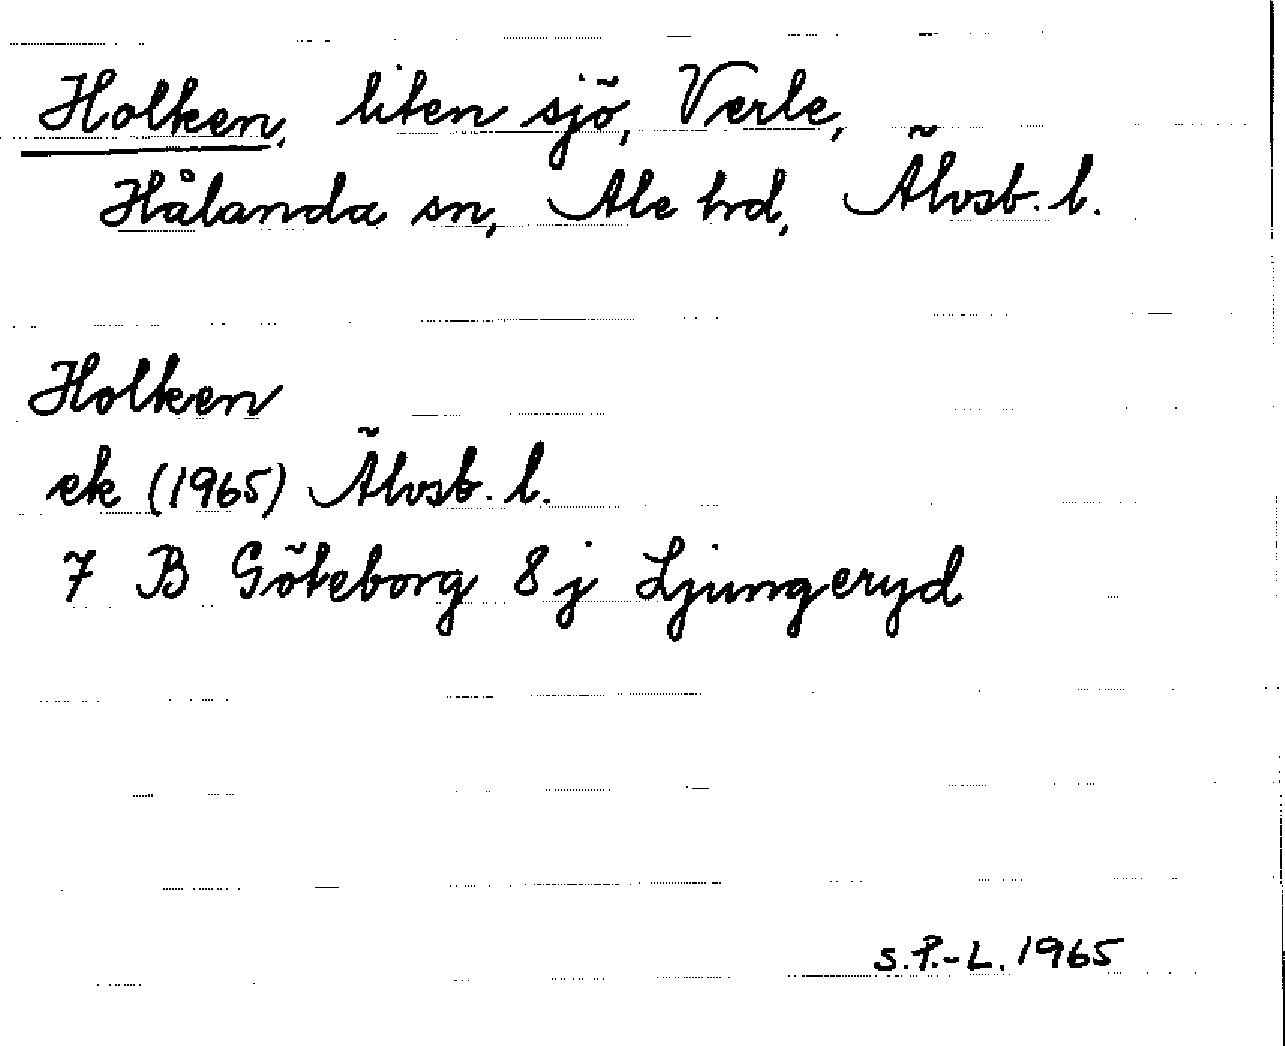 Holken, liten sjö, Verle,
Hålanda sn, Ale hrd, Älvsb. l.
Holken
ek (1965) Älvsb. l.
7 B Göteborg 8 j Ljungeryd
s.P.-L. 1965